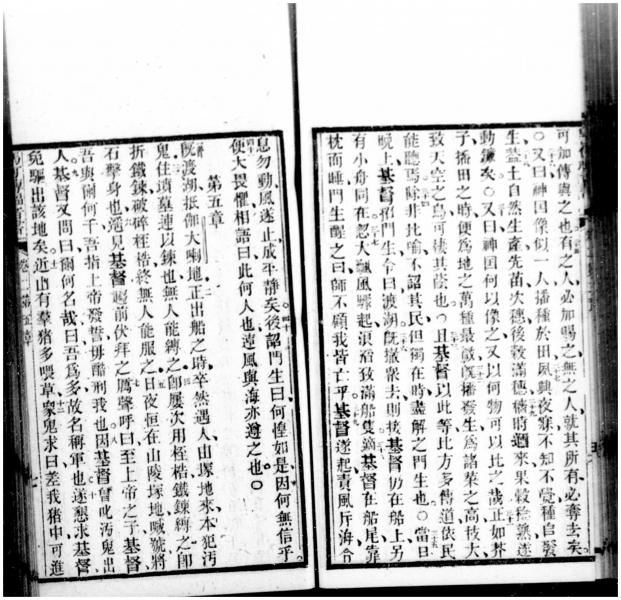 可加傳與之也有之人必加賜之無之人就其所有必奪去矣
○又曰神国傑似一人播種於田夙興夜寐不知不覺種自發
生蓋土自然生產先苗次穗後穀滿穗積時來果穀稔熟遂
動鐮矣○又曰神国何以像之又以何物可以比之哉正如芥
子播田之時便為地之萬種最微旣播發生為諸菜之高枝大
致天空之鳥可棲其蔭也○且基督以此等比方多傳道依民
能聽焉除非比喻不詔其民但獨在時盡解之門生也○當日
晚上基督招門生令曰渡湖旣撤衆去則接基督仍在船上另
有小舟同在忽大颶風驟起浪滔致滿船隻適基督在船尾靠
枕而睡門生醒之曰師不顧我皆亡乎基督遂起責風斥海令
息勿動風遂止成平靜矣後詔門生曰何惶如是因何無信乎
便大畏懼相語曰此何人也連風與海亦遵之也○
第五章
旣渡湖抵伽大喇地正出船之時卒然遇人由塚地來本犯汚
鬼住墳墓連以鍊也無人能縛之卽屢次用桎梏鐵鍊縛之卽
折鐵鍊破碎桎梏終無人能服之日夜恒在山陵塚地喊號將
石擊身也遙見基督趨前伏拜之厲聲呼曰至上帝之子基督
吾與爾何干吾指上帝發誓毋酷刑我也因基督曾叱汚鬼出
人基督又問曰爾何名哉曰吾為多故名稱軍也遂懇求基督
免驅出該地矣近山有羣猪多喂草衆鬼求曰差我猪中可進